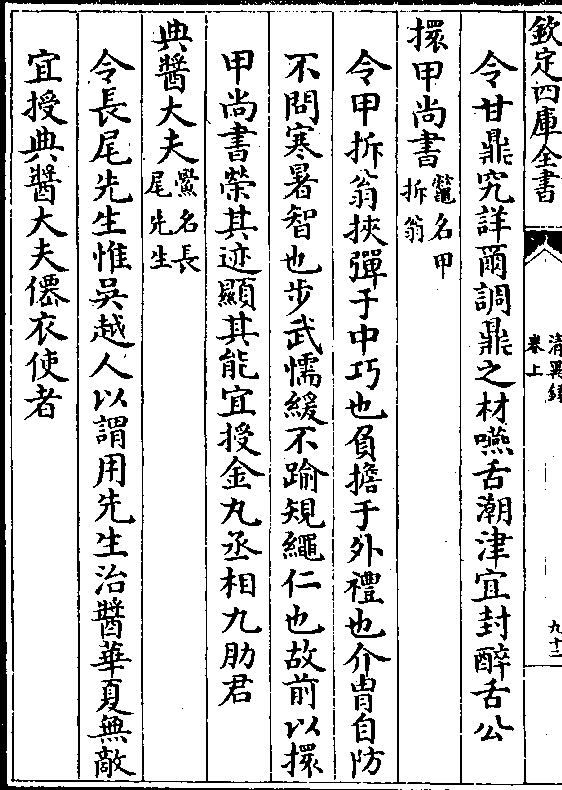 欽定四庫全書
清異録
卷上
九十二
令甘鼎究詳爾調鼎之材嚥舌潮津宜封醉舌公
擐甲尚書鼈名甲
拆翁
令甲拆翁挾彈于中巧也負擔于外禮也介胄自防
不問寒暑智也步武懦緩不踰規繩仁也故前以擐
甲尚書榮其迹顯其能宜授金丸丞相九肋君
典醬大夫鱟名長
尾先生
令長尾先生惟吳越人以謂用先生治醬華夏無敵
宜授典醬大夫僊衣使者